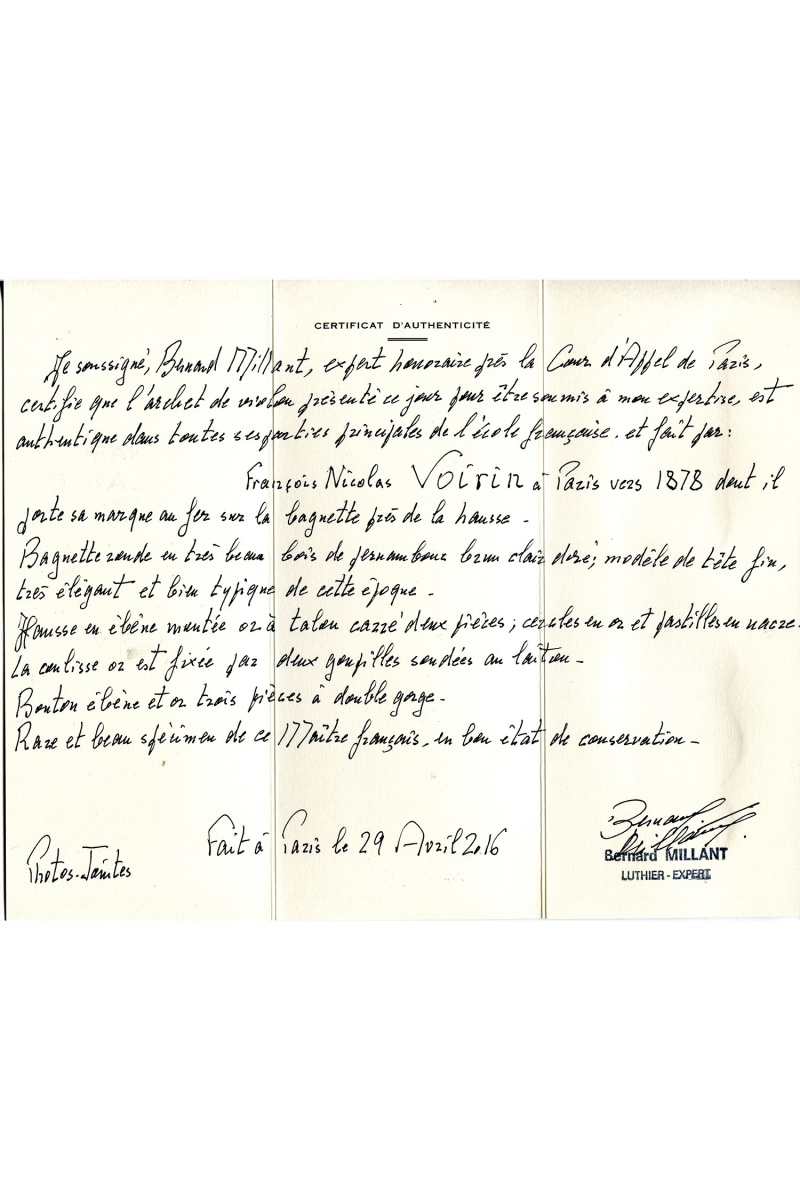 CERTIFICAT D'AUTHENTICITÉ
Je soussigné, Bernard Millant, expert honoraire près la Cour d'Appel de Paris,
certifie que l'archet de violon présenté ce jour pour être soumis à mon expertise, est
authentique dans toutes ses parties principales de l'école française. et fait par:
François Nicolas Voirin à Paris vers 1878 dont il
porte sa marque au fer sur la baguette près de la hausse -
Baguette ronde en très beau bois de pernambouc brun clair doré; modèle de tête fin,
très élégant et bien typique de cette époque -
Hausse en ébène montée or à talon carré deux pièces; cercles en or et pastilles en nacre-
La coulisse or est fixée par deux goupilles soudées au laiton -
Bouton ébène et or trois pièces à double gorge -
Rare et beau spécimen de ce Maître français, en bon état de conservation -
Fait à Paris le 29 Avril 2016
Photos-Jointes
Bernard Millant
Bernard MILLANT
LUTHIER - EXPERT